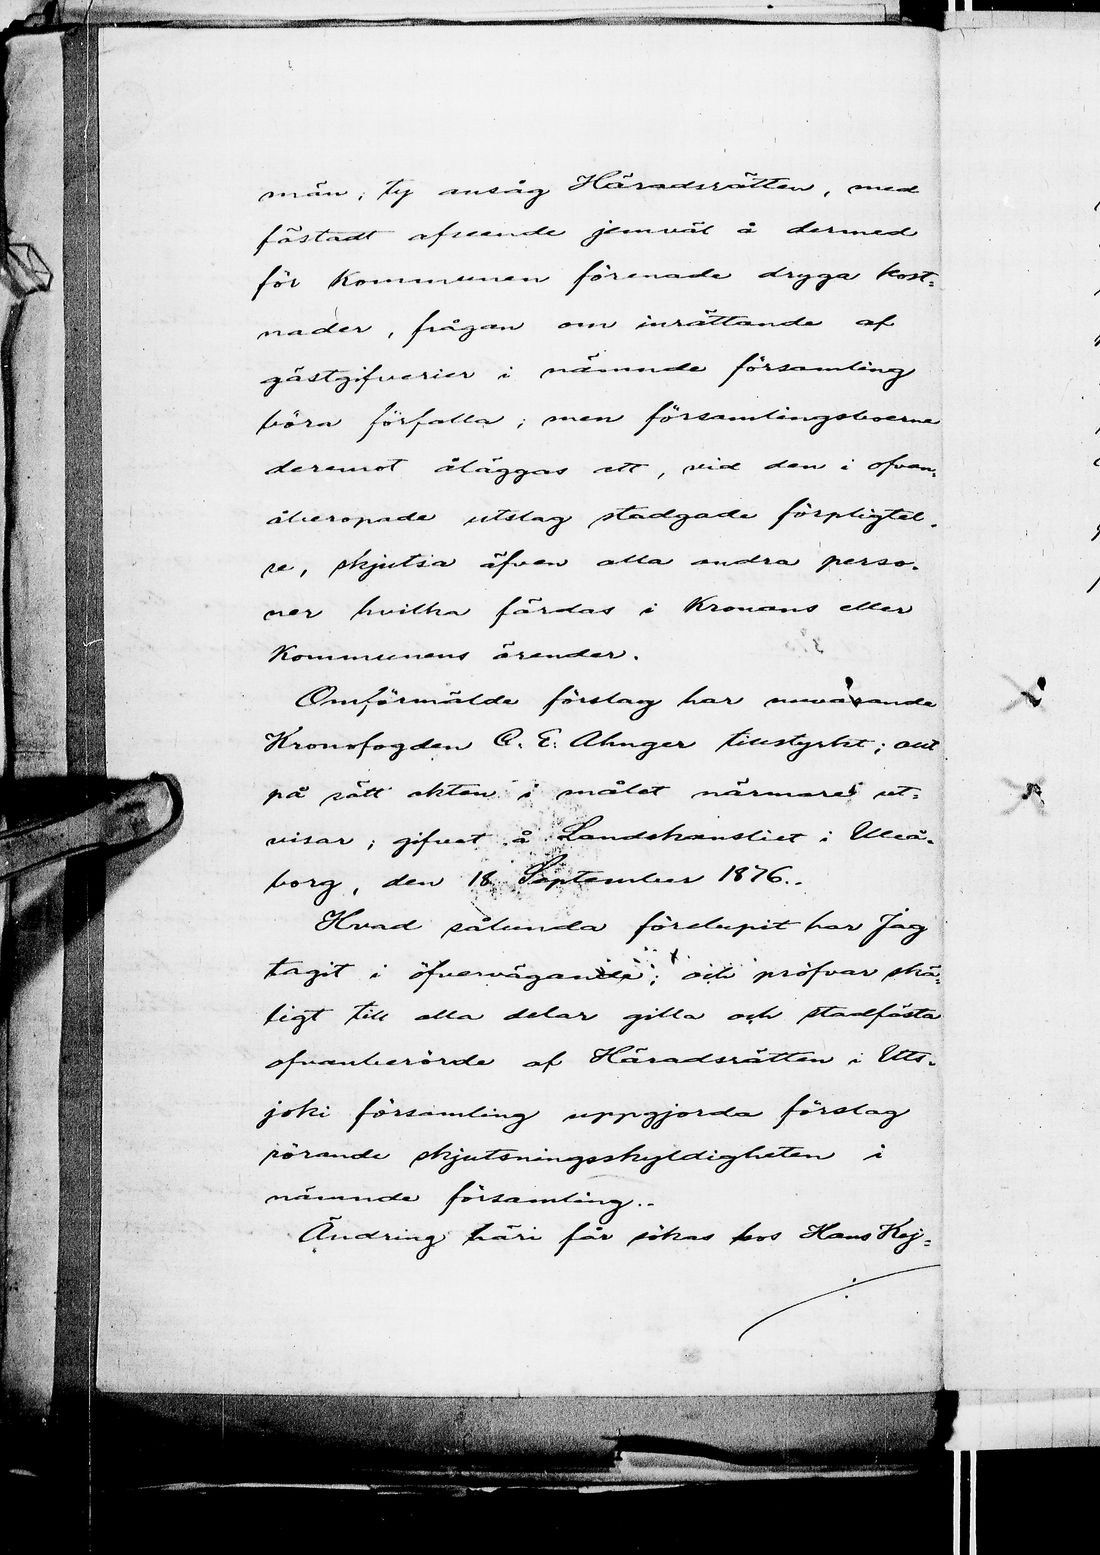 män, ty ansåg Häradsrätten, med
fästadt afseende jemväl å dermed
för Kommunen förenade dryga kost=
nader, frågan om inrättande af
gästgifverier i nämnde församling
böra förfalla; men församlingsboerne
deremot åläggas att, vid den i ofvan=
åberopade utslag stadgade förpligtel=
se, skjutsa äfven alla andra perso=
ner hvilka färdas i Kronans eller
Kommunens ärender.
Omförmälde förslag har nuvarande
Kronofogden C. E. Ahnger tillstyrkt; allt
på sätt akten i målet närmare ut=
visar; gifvet å Landskansliet i Uleå=
borg, den 18 September 1876.
Hvad sålunda förelupit har Jag
tagit i öfvervägande; och pröfvar skä=
ligt till alla delar gilla och stadfästa
ofvanberörde af Häradsrätten i Uts=
joki församling uppgjorda förslag
rörande skjutsningsskyldigheten i
nämnde församling.
Ändring häri får sökas hos Hans Kej=